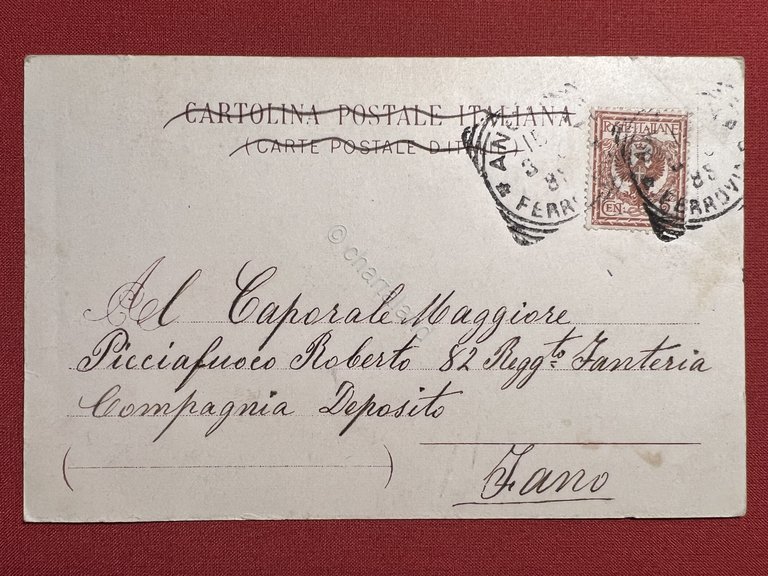 CARTOLINA POSTALE ITALIANA
(CARTE POSTALE D'IT )
POSTE ITALIANE
CEN. 2
FERROVIA
© chartaland
Al Caporale Maggiore
Picciafuoco Roberto 82 Regg.to Fanteria
Compagnia Deposito
Fano